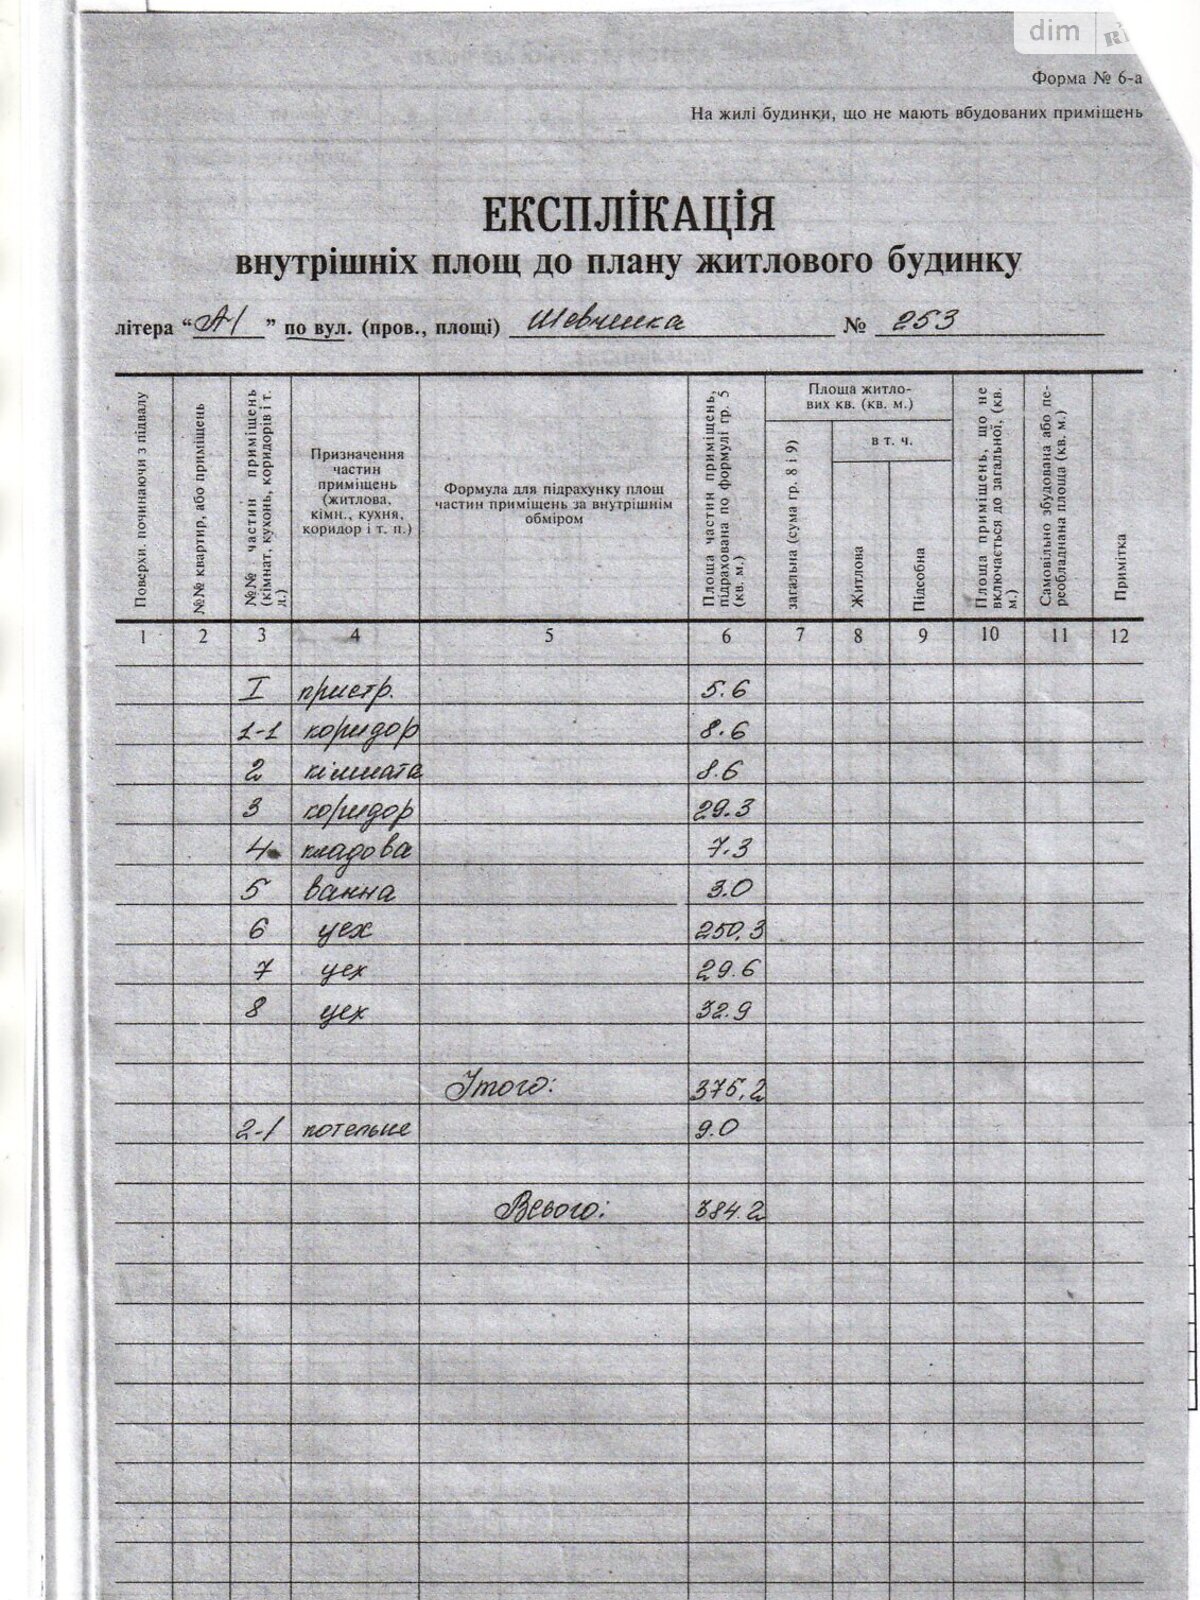 dim
Форма № 6-а
На жилі будинки, що не мають вбудованих приміщень
ЕКСПЛІКАЦІЯ
внутрішніх площ до плану житлового будинку
літера “А-І” по вул. (пров., площі) Шевченка № 253
Поверхи. починаючи з підвалу
№№ квартир, або приміщень
№№ частин приміщень (кімнат, кухонь, коридорів і т. л.)
Призначення частин приміщень (житлова, кімн., кухня, коридор і т. п.)
Формула для підрахунку площ частин приміщень за внутрішнім обміром
Площа частин приміщень, підрахована по формулі гр. 5 (кв. м.)
Площа житлових кв. (кв. м.)
загальна (сума гр. 8 і 9)
в т. ч.
Житлова
Підсобна
Площа приміщень, що не включається до загальної, (кв. м.)
Самовільно збудована або переобладнана площа (кв. м.)
Примітка
1 2 3 4 5 6 7 8 9 10 11 12
I пристр. 5.6
1-1 коридор 8.6
2 кімната 8.6
3 коридор 29.3
4 кладова 7.3
5 ванна 3.0
6 цех 250,3
7 цех 29.6
8 цех 32.9
Ітого: 375,2
2-1 котельне 9.0
Всього: 384.2